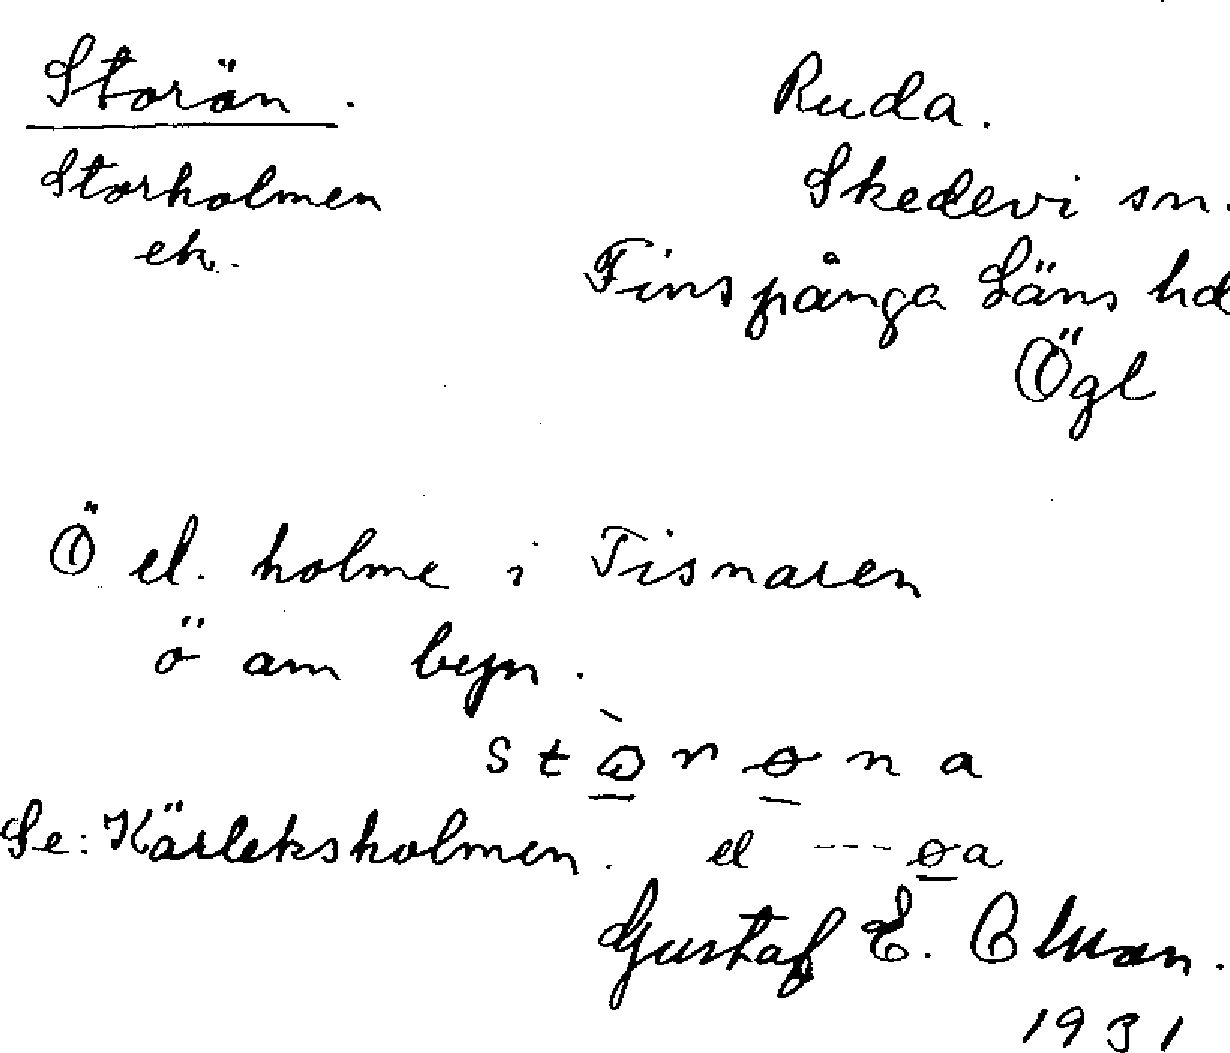 Storön.
Storholmen
ek.
Ruda.
Skedevi sn.
Finspånga Läns hd
Ögl
Ö el. holme i Tisnaren
ö om byn.
Se: Kärleksholmen. el --- øa
Gustaf E.
1931